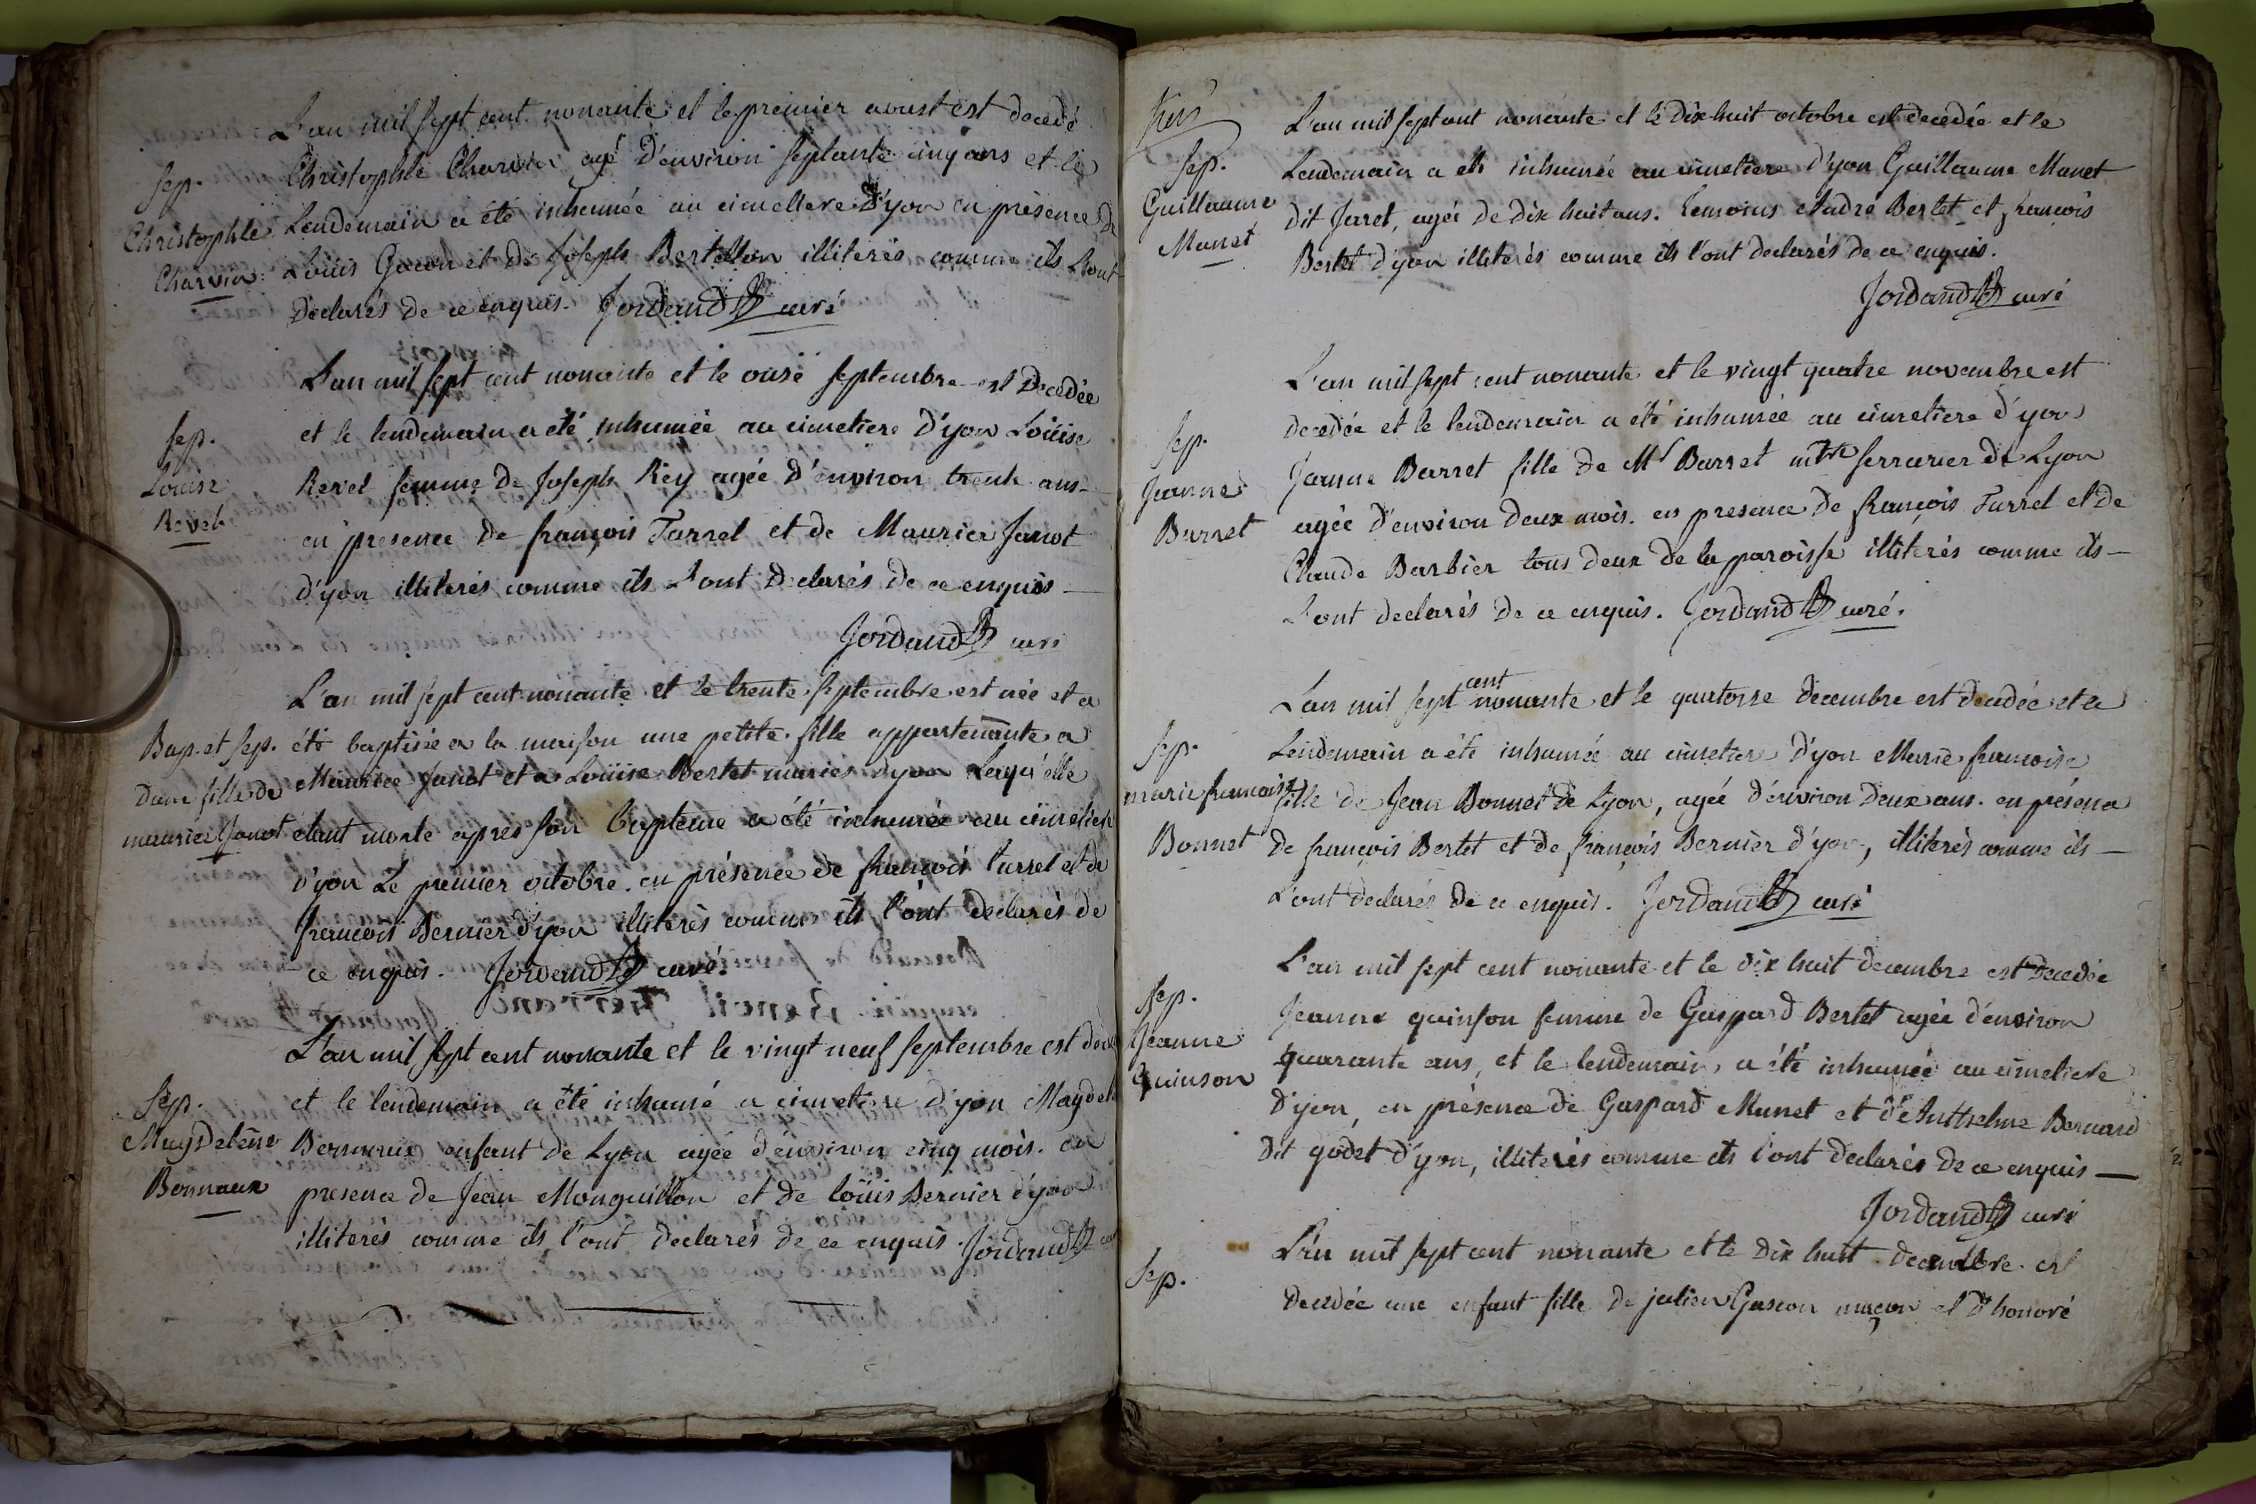 L'an mil sept cent nonante et le premier aoust est decedé
Sep.
Christophle
Charvin
Christophle Charvin agé d'environ septante cinq ans et le
Lendemain a été inhumée au cimettere d'yon en présence de
Loüis Gacon et de Joseph Bertillon illiterés comme ils L'ont
declarés de ce enquis. Jordand curé
L'an mil sept cent nonante et le onse septembre est decedée
Sep.
Louise
Revel
et le lendemain a été inhumée au cimetiere d'yon Loüise
Revel femme de Joseph Rey agée d'environ trente ans
en presence de françois Turrel et de Maurice Janot
d'yon illiterés comme ils L'ont declarés de ce enquis
Jordand curé
L'an mil sept cent nonante et le trente septembre est née et a
Bap. et sep.
d'une fille de
maurice Janot
été baptisée a la maison une petite fille appartenante a
Maurice Janot et a Loüise Bertet mariés d'yon Laqu'elle
etant morte apres son baptême a été inhumée au cimetiere
d'yon Le premier octobre. en présence de françois turrel et de
françois Bernier d'yon illiterés comme ils l'ont declarés de
ce enquis. Jordand curé.
L'an mil sept cent nonante et le vingt neuf septembre est
Sep.
Magdeleine
Bonnaux
et le lendemain a été inhumé a cimetiere d'yon
Bonnaux enfant de Lyon agée d'environ cinq mois. en
presence de Jean Monguillon et de loüis Bernier d'yon
illiterés comme ils l'ont declarés de ce enquis. Jordand
L'an mil sept cent nonante et le dix huit octobre est decedée et le
Sep.
Guillaume
Manet
Lendemain a été inhumée au cimetiere d'yon Guillaume Manet
dit Jaret, agée de dix huit ans. temoins André Bertet et françois
Bertet d'yon illiterés comme ils l'ont declarés de ce enquis.
Jordand curé
L'an mil sept cent nonante et le vingt quatre novembre est
Sep.
Jeanne
Barret
decedée et le lendemain a été inhumée au cimetiere d'yon
Jeanne Barret fille de Mr Barret mtre serrurier de Lyon
agée d'environ deux mois. en presence de françois Turrel et de
Claude Barbier tous deux de la paroisse illiterés comme ils
L'ont declarés de ce enquis. Jordand curé.
L'an mil sept cent nonante et le quatorse decembre est decedée et le
Sep.
marie francoise
Bonnet
Lendemain a été inhumée au cimetiere d'yon Marie francoise
fille de Jean Bonnet de Lyon, agée d'environ deux ans. en présence
de françois Bertet et de françois Bernier d'yon, illiterés comme ils
L'ont declarés de ce enquis. Jordand curé
L'an mil sept cent nonante et le dix huit decembre est decedée
Sep.
Jeanne
Quinson
Jeanne quinson femme de Gaspard Bertet agée d'environ
quarante ans, et le lendemain a été inhumée au cimetiere
d'yon, en présence de Gaspard Manet et d'Anthelme Bernard
dit godet d'yon, illiterés comme ils l'ont declarés de ce enquis
Jordand curé
Sep.
L'an mil sept cent nonante et le dix huit decembre est
decedée une enfant fille de julien Gascon maçon et d'honoré